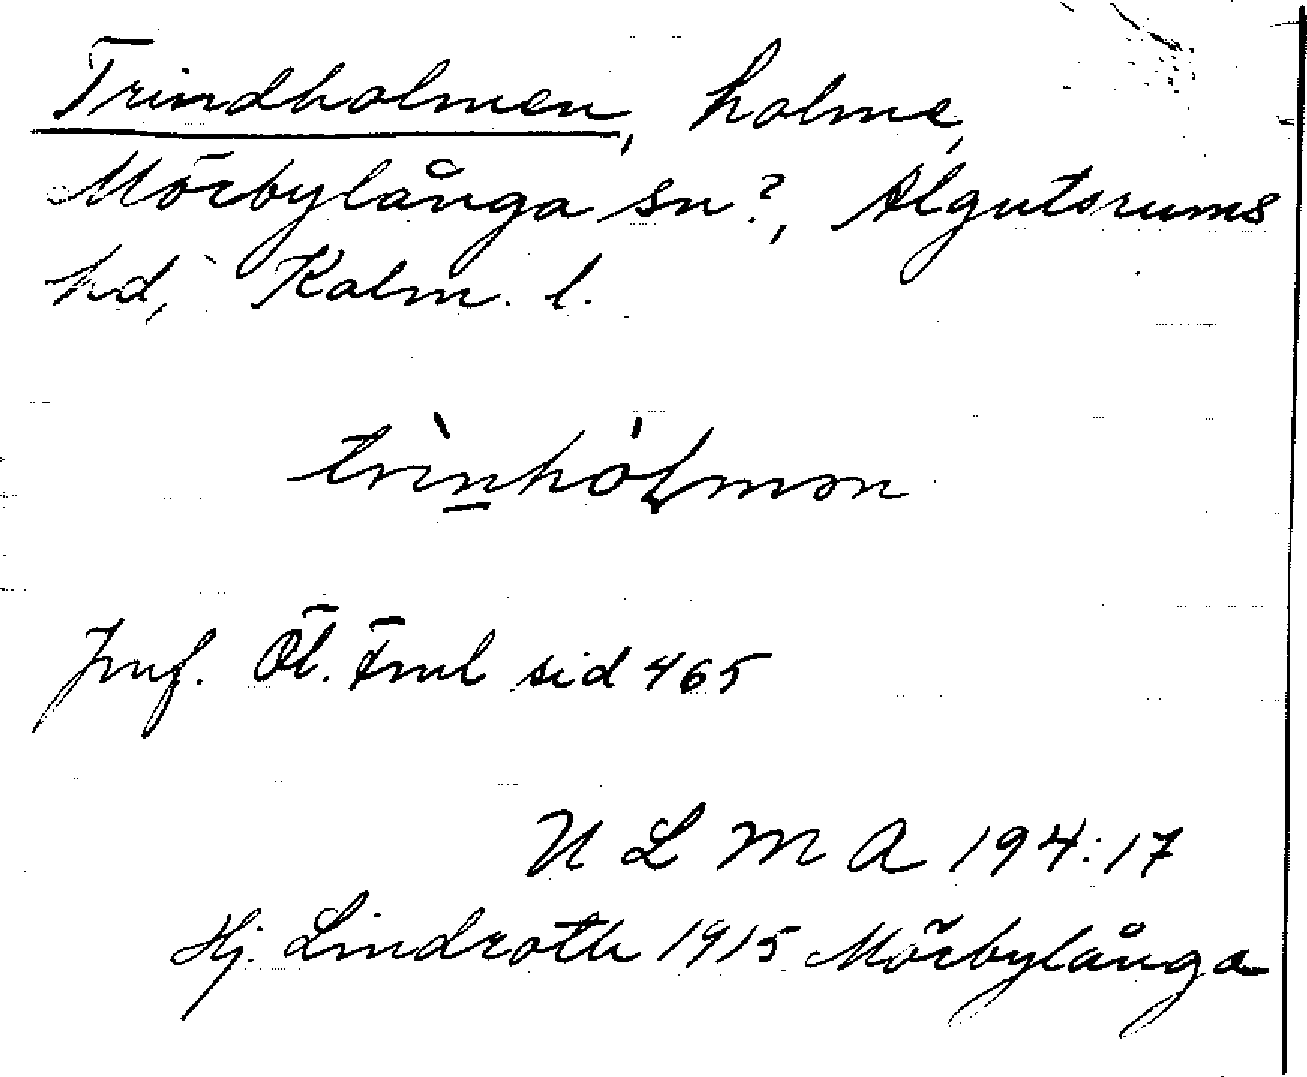 Trindholmen, holme,
Mörbylånga sn?, Algutsrums
hd, Kalm. l.
trìnhól̥mən
Jmf. Öl. Fml sid 465
U L M A 194:17
Hj. Lindroth 1915 Mörbylånga